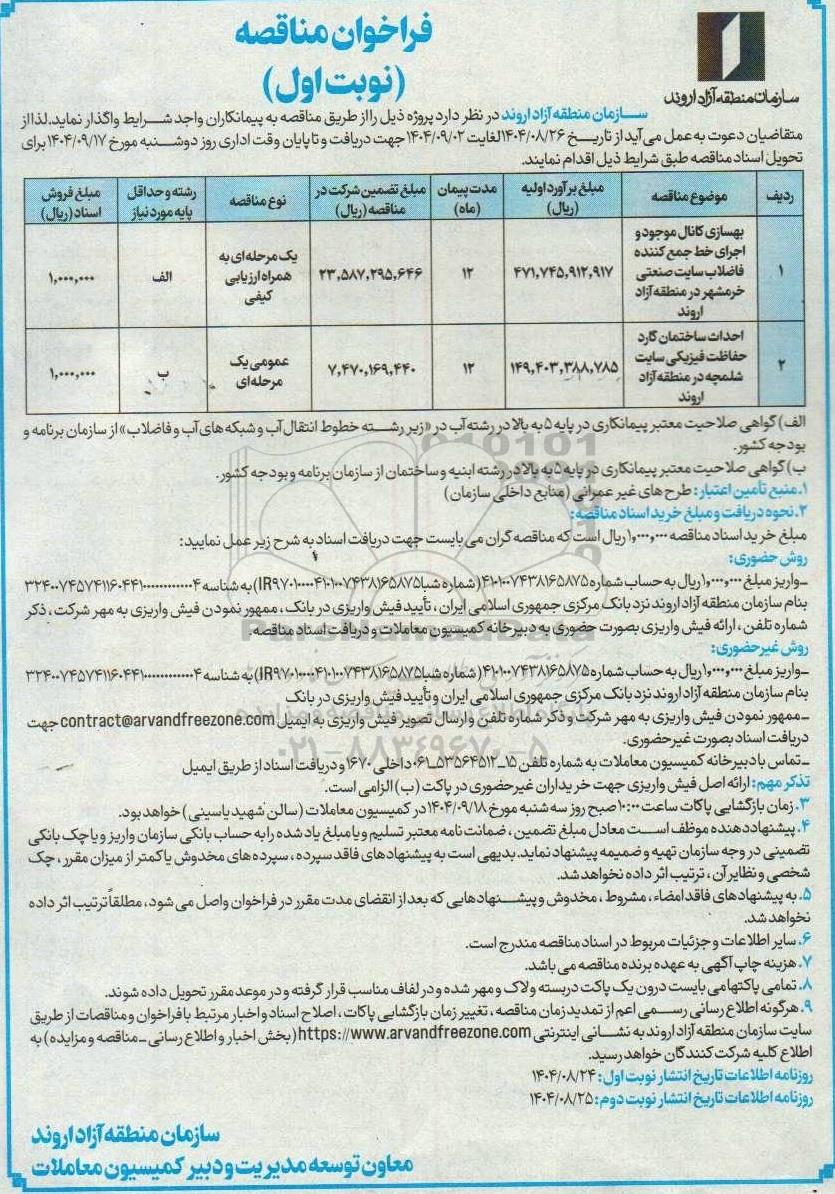 فراخوان مناقصه
(نوبت اول)
سازمان منطقه آزاد اروند
سازمان منطقه آزاد اروند در نظر دارد پروژه ذیل را از طریق مناقصه به پیمانکاران واجد شرایط واگذار نماید. لذا از
متقاضیان دعوت به عمل می آید از تاریخ ۱۴۰۴/۰۸/۲۶ لغایت ۱۴۰۴/۰۹/۰۲ جهت دریافت و تا پایان وقت اداری روز دوشنبه مورخ ۱۴۰۴/۰۹/۱۷ برای
تحویل اسناد مناقصه طبق شرایط ذیل اقدام نمایند.
ردیف موضوع مناقصه مبلغ برآورد اولیه (ریال) مدت پیمان (ماه) مبلغ تضمین شرکت در مناقصه (ریال) نوع مناقصه رشته و حداقل پایه مورد نیاز مبلغ فروش اسناد (ریال)
۱ بهسازی کانال موجود و اجرای خط جمع کننده فاضلاب سایت صنعتی خرمشهر در منطقه آزاد اروند ۴۷۱,۷۴۵,۹۱۲,۹۱۷ ۱۲ ۲۳,۵۸۷,۲۹۵,۶۴۶ یک مرحله ای به همراه ارزیابی کیفی الف ۱,۰۰۰,۰۰۰
۲ احداث ساختمان گارد حفاظت فیزیکی سایت شلمچه در منطقه آزاد اروند ۱۴۹,۴۰۳,۳۸۸,۷۸۵ ۱۲ ۷,۴۷۰,۱۶۹,۴۴۰ عمومی یک مرحله ای ب ۱,۰۰۰,۰۰۰
الف) گواهی صلاحیت معتبر پیمانکاری در پایه ۵ به بالا در رشته آب در «زیر رشته خطوط انتقال آب و شبکه های آب و فاضلاب» از سازمان برنامه و
بودجه کشور.
ب) گواهی صلاحیت معتبر پیمانکاری در پایه ۵ به بالا در رشته ابنیه و ساختمان از سازمان برنامه و بودجه کشور.
۱. منبع تأمین اعتبار: طرح های غیر عمرانی (منابع داخلی سازمان)
۲. نحوه دریافت و مبلغ خرید اسناد مناقصه:
مبلغ خرید اسناد مناقصه ۱,۰۰۰,۰۰۰ ریال است که مناقصه گران می بایست جهت دریافت اسناد به شرح زیر عمل نمایند:
روش حضوری:
_واریز مبلغ ۱,۰۰۰,۰۰۰ ریال به حساب شماره ۴۱۰۱۰۰۷۴۳۸۱۶۵۸۷۵ (شماره شبا IR۹۷۰۱۰۰۰۰۴۱۰۱۰۰۷۴۳۸۱۶۵۸۷۵) به شناسه
بنام سازمان منطقه آزاد اروند نزد بانک مرکزی جمهوری اسلامی ایران ، تأیید فیش واریزی در بانک ، ممهور نمودن فیش واریزی به مهر شرکت ، ذکر
شماره تلفن ، ارائه فیش واریزی بصورت حضوری به دبیرخانه کمیسیون معاملات و دریافت اسناد مناقصه.
روش غیر حضوری:
_واریز مبلغ ۱,۰۰۰,۰۰۰ ریال به حساب شماره ۴۱۰۱۰۰۷۴۳۸۱۶۵۸۷۵ (شماره شبا IR۹۷۰۱۰۰۰۰۴۱۰۱۰۰۷۴۳۸۱۶۵۸۷۵) به شناسه
بنام سازمان منطقه آزاد اروند نزد بانک مرکزی جمهوری اسلامی ایران و تأیید فیش واریزی در بانک
_ممهور نمودن فیش واریزی به مهر شرکت و ذکر شماره تلفن و ارسال تصویر فیش واریزی به ایمیل contract@arvandfreezone.com جهت
دریافت اسناد بصورت غیر حضوری.
_تماس با دبیرخانه کمیسیون معاملات به شماره تلفن ۱۵_۵۳۵۶۴۵۱۲_۰۶۱ داخلی ۱۶۷۰ و دریافت اسناد از طریق ایمیل
تذکر مهم: ارائه اصل فیش واریزی جهت خریداران غیر حضوری در پاکت (ب) الزامی است.
۳. زمان بازگشایی پاکات ساعت ۱۰:۰۰ صبح روز سه شنبه مورخ ۱۴۰۴/۰۹/۱۸ در کمیسیون معاملات (سالن شهید یاسینی) خواهد بود.
۴. پیشنهاد دهنده موظف است معادل مبلغ تضمین ، ضمانت نامه معتبر تسلیم و یا مبلغ یاد شده را به حساب بانکی سازمان واریز و یا چک بانکی
تضمینی در وجه سازمان تهیه و ضمیمه پیشنهاد نماید. بدیهی است به پیشنهادهای فاقد سپرده ، سپرده های مخدوش یا کمتر از میزان مقرر ، چک
شخصی و نظایر آن ، ترتیب اثر داده نخواهد شد.
۵. به پیشنهادهای فاقد امضاء ، مشروط ، مخدوش و پیشنهادهایی که بعد از انقضای مدت مقرر در فراخوان واصل می شود ، مطلقاً ترتیب اثر داده
نخواهد شد.
۶. سایر اطلاعات و جزئیات مربوط در اسناد مناقصه مندرج است.
۷. هزینه چاپ آگهی به عهده برنده مناقصه می باشد.
۸. تمامی پاکتها می بایست درون یک پاکت دربسته و لاک و مهر شده و در لفاف مناسب قرار گرفته و در موعد مقرر تحویل داده شوند.
۹. هرگونه اطلاع رسانی رسمی اعم از تمدید زمان مناقصه ، تغییر زمان بازگشایی پاکات ، اصلاح اسناد و اخبار مرتبط با فراخوان و مناقصات از طریق
سایت سازمان منطقه آزاد اروند به نشانی اینترنتی https://www.arvandfreezone.com (بخش اخبار و اطلاع رسانی _ مناقصه و مزایده) به
اطلاع کلیه شرکت کنندگان خواهد رسید.
روزنامه اطلاعات تاریخ انتشار نوبت اول: ۱۴۰۴/۰۸/۲۴
روزنامه اطلاعات تاریخ انتشار نوبت دوم: ۱۴۰۴/۰۸/۲۵
سازمان منطقه آزاد اروند
معاون توسعه مدیریت و دبیر کمیسیون معاملات
ParsNamadData
۰۲۱-۸۸۳۴۹۶۷۰-۵